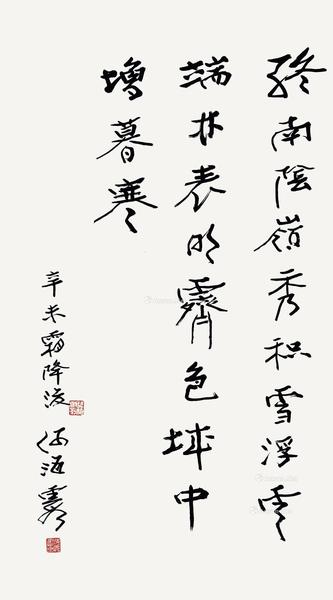 終南陰嶺秀积雪浮雲
端林表明霽色城中
增暮寒
辛未霜降後 何海霞